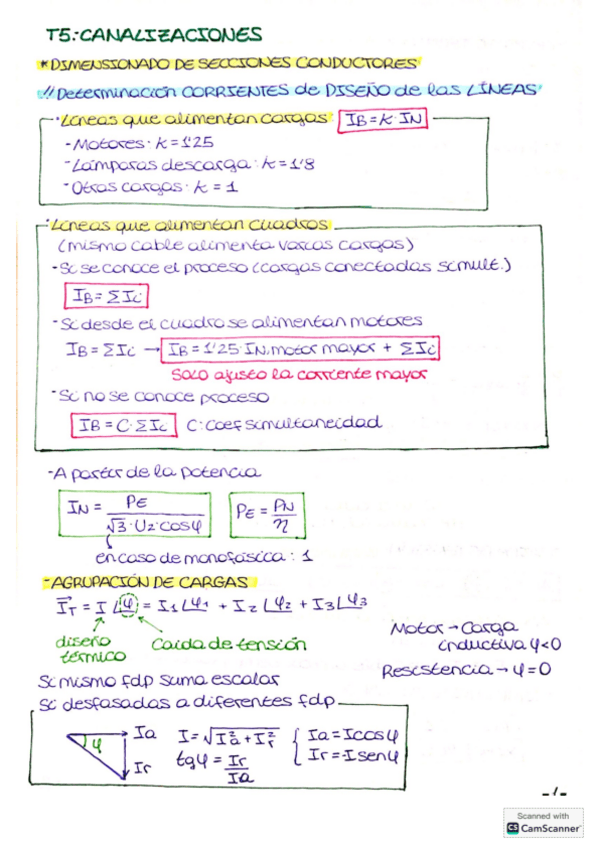 T5: CANALIZACIONES
* DIMENSIONADO DE SECCIONES CONDUCTORES
// Determinación CORRIENTES de DISEÑO de las LÍNEAS
· Líneas que alimentan cargas: IB = K · IN
- Motores: k = 1'25
- Lámparas descarga: k = 1'8
- Otras cargas: k = 1
· Líneas que alimentan cuadros
(mismo cable alimenta varias cargas)
- Si se conoce el proceso (cargas conectadas simult.)
IB = Σ Ii
- Si desde el cuadro se alimentan motores
IB = Σ Ii → IB = 1'25 · IN, motor mayor + Σ Ii
solo ajusto la corriente mayor
- Si no se conoce proceso
IB = C · Σ Ii C: Coef simultaneidad
- A partir de la potencia
IN = PE / √3 · U2 · cos φ PE = PN / η
en caso de monofásica: 1
- AGRUPACIÓN DE CARGAS
IT = I∠φ = I1∠φ1 + I2∠φ2 + I3∠φ3
diseño térmico
Caída de tensión
Motor → Carga inductiva φ<0
Resistencia → φ = 0
Si mismo fdp suma escalar
Si desfasadas a diferentes fdp
φ Ia Ir
I = √Ia² + Ir²
tg φ = Ir / Ia
{ Ia = I cos φ
Ir = I sen φ
- 1 -
Scanned with
CS CamScanner